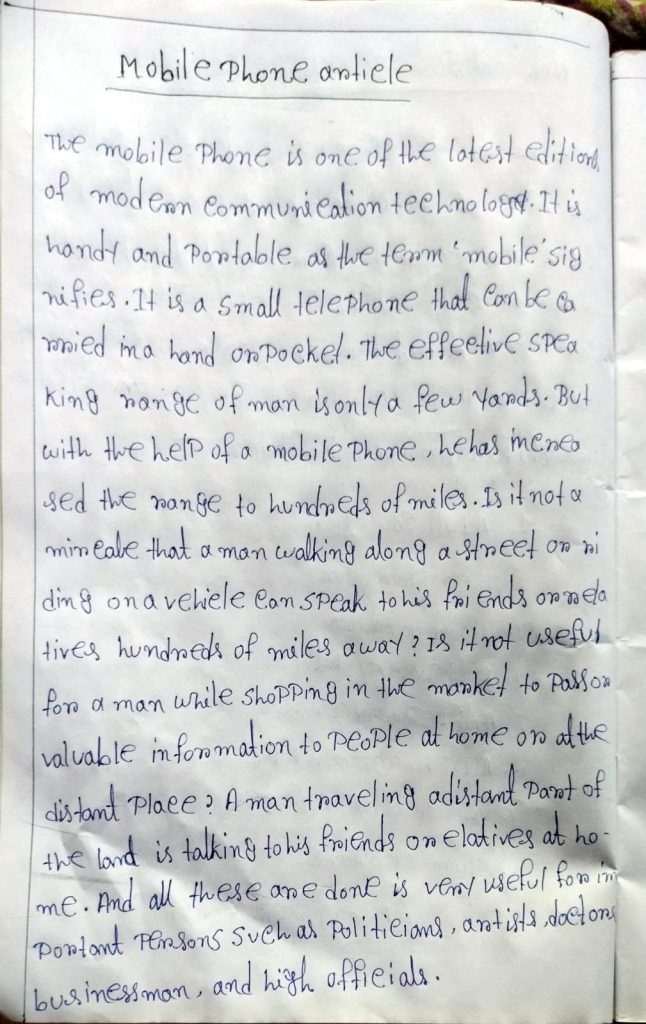 Mobile Phone article
The mobile Phone is one of the latest editions
of modern communication technology. It is
handy and Portable as the term 'mobile' sig
nifies. It is a small telephone that can be ca
rried in a hand or Pocket. The effective spea
king range of man is only a few yards. But
with the help of a mobile Phone, he has increa
sed the range to hundreds of miles. Is it not a
mircale that a man walking along a street or ri
ding on a vehicle can speak to his friends or rela
tives hundreds of miles away? Is it not useful
for a man while shopping in the market to Pass on
valuable information to People at home or at the
distant Place? A man traveling a distant Part of
the land is talking to his friends or elatives at ho-
me. And all these are done is very useful for im
Portant Persons such as Politicians, artists, doctors
businessman, and high officials.